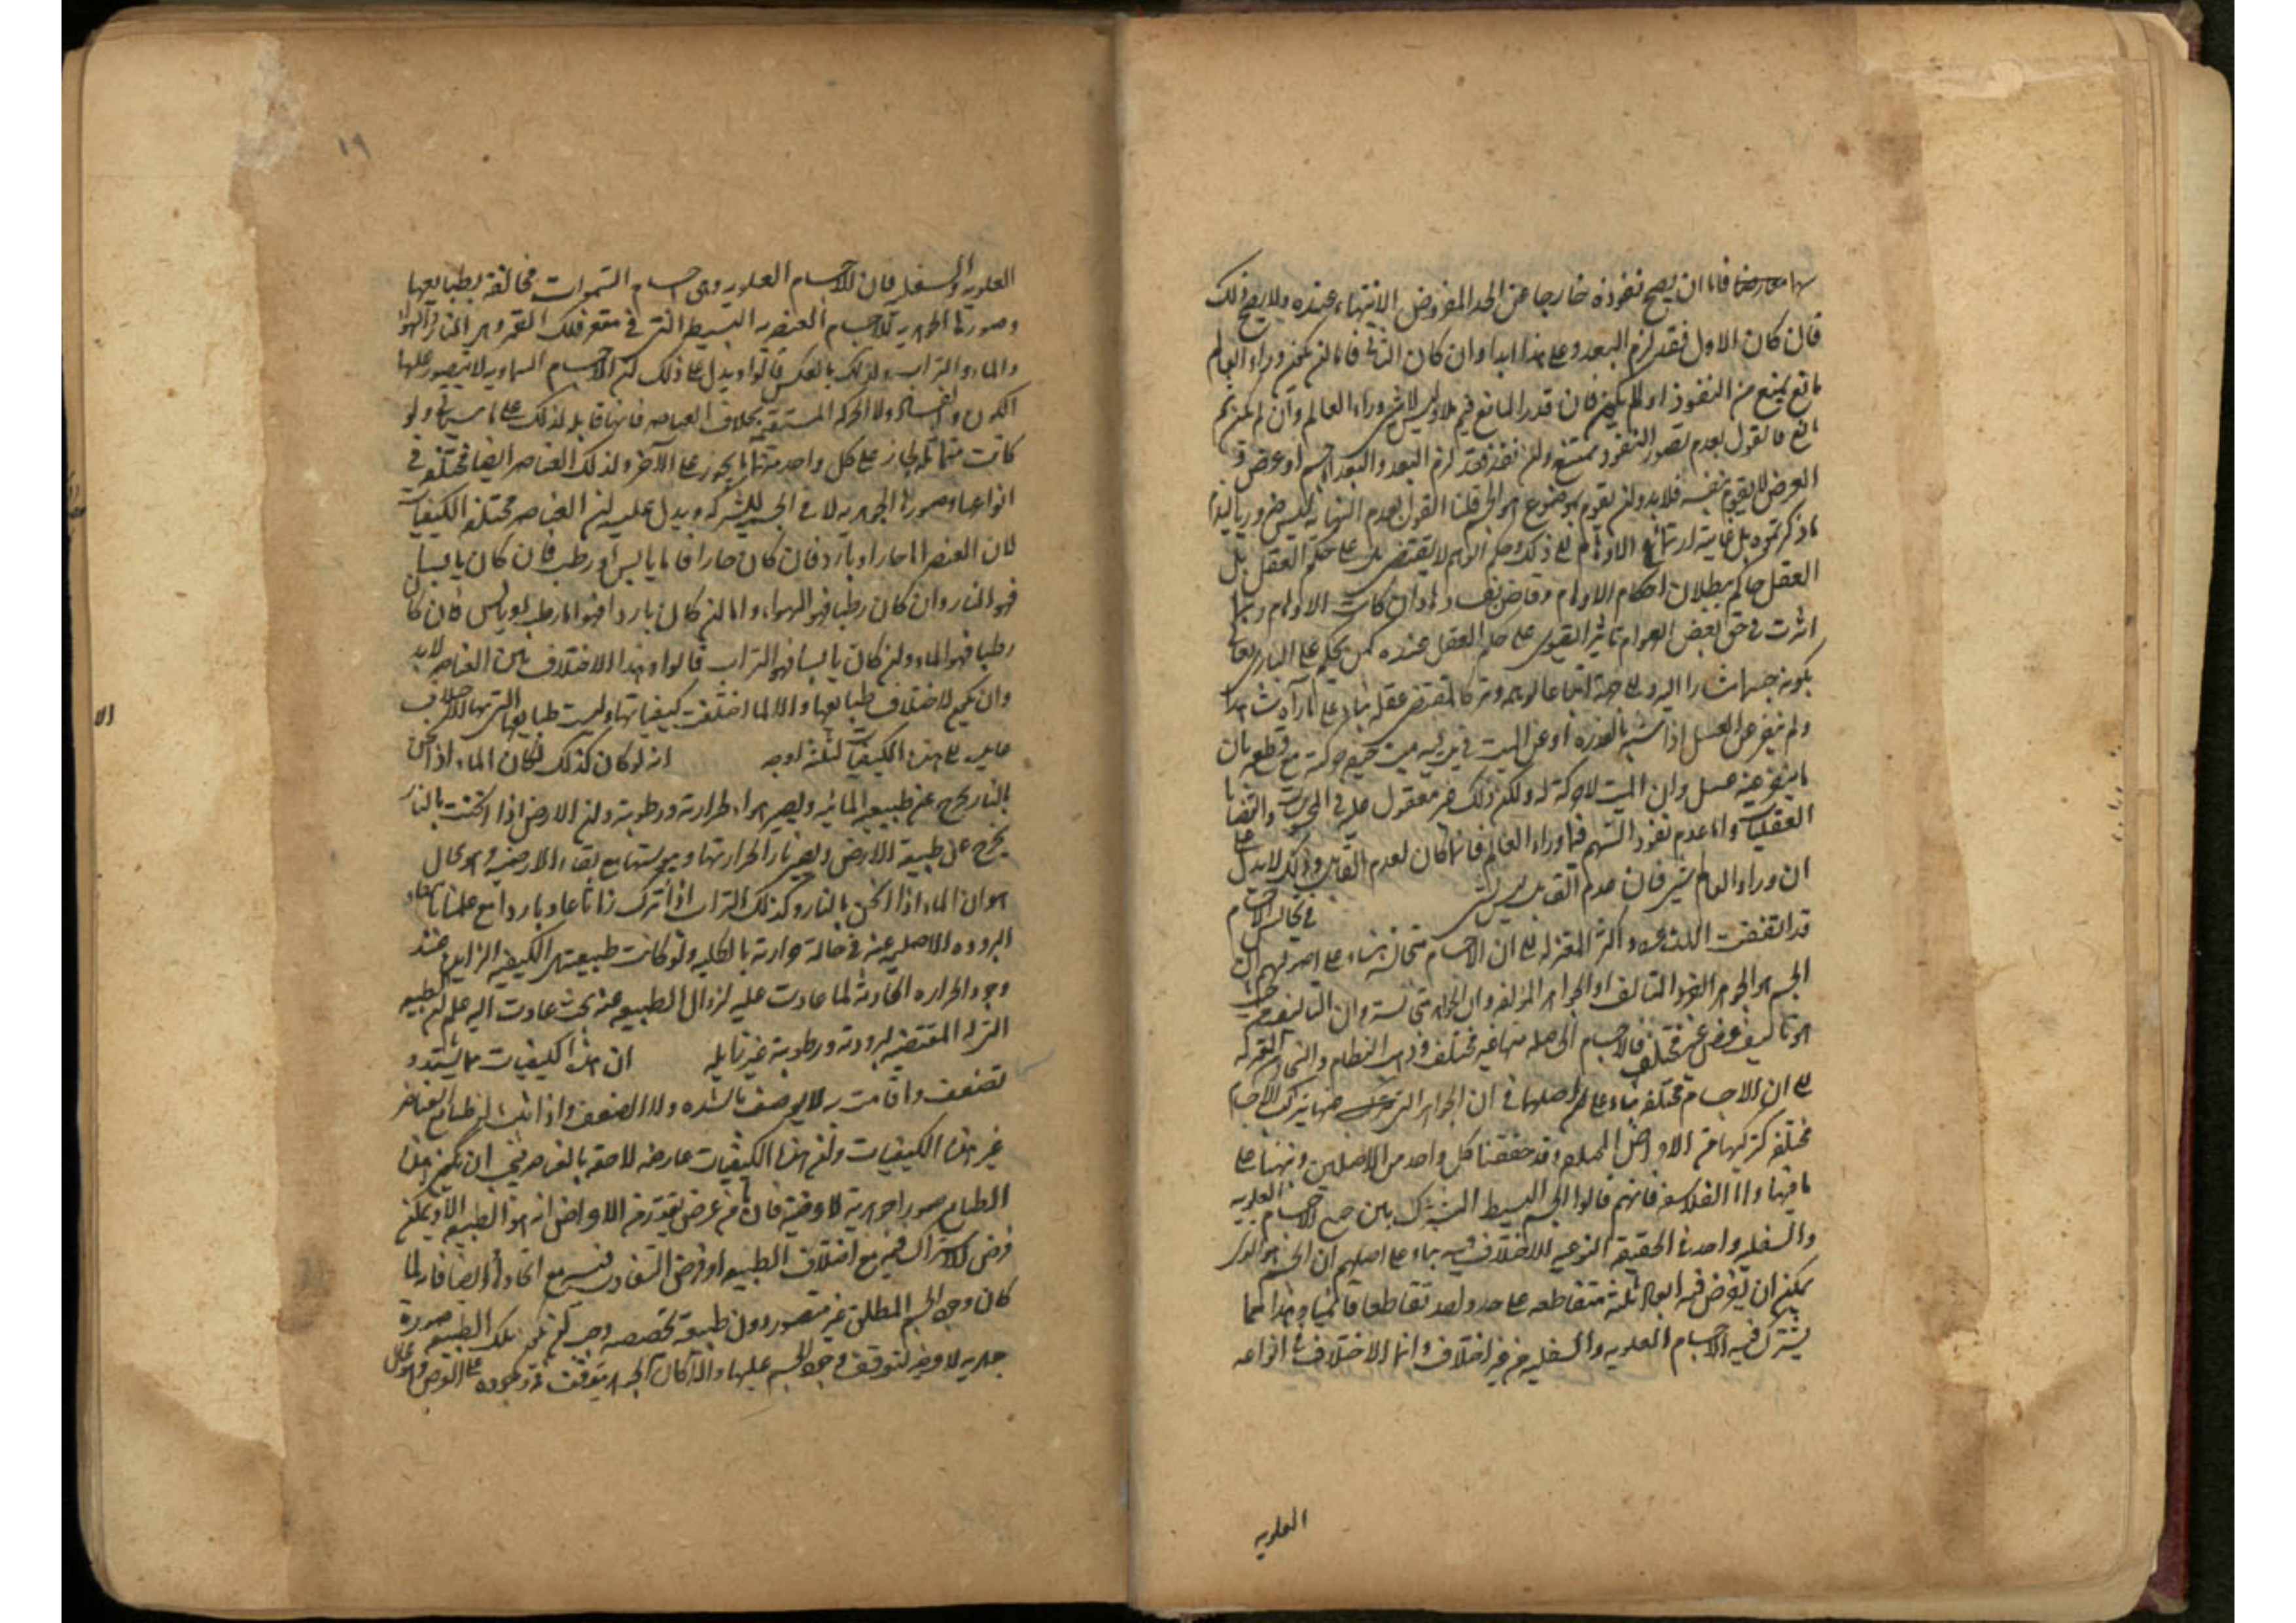 سهما معارضا فاما ان يصح نفوذه خارجا عن الحد المفروض الانتهاء عنده ولا يصح ذلك
فان كان الاول فقد لزم البعد وعلى هذا ابدا وان كان الثاني فاما لن يكون وراء العالم
مانع يمنع من النفوذ او لم يكن فان قدر المانع فهو ملاء لا لاشي وراء العالم وان لم يكن ثم
مانع فالقول بعدم تصور النفوذ ممتنع ولن نفذ فقد لزم البعد والبعد اما جسم او عرض و
العرض لا يقوم بنفسه فلا بد ولن يقوم بموضوع هو الجسم قلنا القول بعدم النهاية ليس ضروريا لما
ما ذكرتموه بل غايته ارتماع الاوهام الى ذلك وحكم الوهم لا يقتضى به على حكم العقل بل
العقل حاكم ببطلان احكام الاوهام وقاض بفسادها وان كانت الاوهام ربما
اثرت في حق بعض العوام تاثير القوى على حكم العقل عنده كمن يحكم على البارى تعالى
بكونه جسما مشارا اليه والى جهة اتباعا لوهمه وتركا لمقتضى عقله بناء على ما رآه شاهدا
ولم ينفر عن العسل اذا شبه بالعذرة او عن المبيت في بيت فيه ميت مع قطعه بان
ما ينفر عنه عسل وان الميت لا حركة له ولكن ذلك غير معقول عليه في الحسيات والقضايا
العقليات واما عدم نفوذ السهم فيما وراء العالم فانما كان لعدم القابل وذلك لا يدل على
ان وراء العالم شي فان عدم القابل ليس بشي في تجانس الاجسام
قد اتفقت الاشاعرة واكثر المعتزلة على ان الاجسام متجانسة بناء على اصولهم ان
الجسم هو الجوهر الفرد المتالف او الجواهر المؤلفة وان الجواهر متجانسة وان التاليف من حيث
هو تاليف عرض غير مختلف فالاجسام الحاصلة منها غير مختلفة وذهب النظام والنجار من المعتزلة
الى ان الاجسام مختلفة بناء على اصلهما في ان الجواهر التي منها يتركب الاجسام
مختلفة كتركيبها من الاعراض المختلفة وقد حققنا كل واحد من الاصلين ونبهنا على
ما فيها واما الفلاسفة فانهم قالوا الجسم البسيط المشترك بين جميع الاجسام العلوية
والسفلية واحد في الحقيقة النوعية لا اختلاف فيه بناء على اصلهم ان الجسم هو الذي
يمكن ان يفرض فيه ابعاد ثلثة متقاطعة على حد واحد تقاطعا قائميا وهذا مما
يشترك فيه الاجسام العلوية والسفلية من غير اختلاف وانما الاختلاف في انواعه
العلويه
١٩
العلوية والسفلية فان الاجسام العلوية وهى اجسام السموات مخالفة بطبايعها
وصورتها الجوهرية للاجسام العنصرية البسيطة التي في مقعر فلك القمر وهى النار والهواء
والماء والتراب وكذلك بالعكس قالوا ويدل على ذلك لن الاجسام السماوية لا يتصور عليها
الكون والفساد ولا الحركة المستقيمة بخلاف العناصر فانها قابلة لذلك على ما سياتي ولو
كانت متماثلة لجاز على كل واحد منها ما يجوز على الآخر وكذلك العناصر ايضا مختلفة في
انواعها وصورها الجوهرية لا في الجسمية المشتركة ويدل عليه لن العناصر مختلفة الكيفيات
لان العنصر اما حار او بارد فان كان حارا فاما يابس او رطب فان كان يابسا
فهو النار وان كان رطبا فهو الهواء واما لن كان باردا فهو اما رطب او يابس فان كان
رطبا فهو الماء ولن كان يابسا فهو التراب قالوا وهذا الاختلاف بين العناصر لا بد
وان يكون لاختلاف طبايعها والا لما اختلفت كيفياتها وليست طبايعها التي بها الاختلاف
عايدة الى هذه الكيفيات لثلثة اوجه انه لو كان كذلك لكان الماء اذا سخن
بالنار يخرج عن طبيعة المائية ويصير هواء لحرارته ورطوبته ولن الارض اذا سخنت بالنار
يخرج عن طبيعة الارض ويصير نارا لحرارتها ويبوستها مع بقاء الارضية وهو محال
هو ان الماء اذا سخن بالنار وكذلك التراب اذا ترك زمانا عاد باردا مع علمنا بنفاد
البرودة الاصلية عنه في حالة حرارته بالكلية ولو كانت طبيعته هي الكيفية الزايلة عند
وجود الحرارة الحادثة لما عادت عليه لزوال الطبيعة عنه بحيث عادت اليه علم لن الطبيعة
التي له المقتضية لبرودته ورطوبته غير زايلة ان هذه الكيفيات مما يشتد و
تضعف والاقامت به لا يوصف بالشدة ولا الضعف واذا ثبت لن طبايع العناصر
غير هذه الكيفيات ولن هذه الكيفيات عارضة لاحقة بالعناصر فيجب ان يكون هذه
الطبايع صورا جوهرية لا عرضية فان ما من عرض يقدر من الاعراض انه هو الطبيعة الا ويمكن
فرض الاشتراك فيه مع اختلاف الطبيعة او فرض التفاوت فيه مع اتحادها وايضا فانه لما
كان وجود الجسم المطلق غير متصور دون طبيعة تخصصه وجب لن يكون تلك الطبيعة صورة
جوهرية لا عرضية لتوقف وجود الجسم عليها والا كان الجوهر يتوقف في وجوده على العرض وهو محال